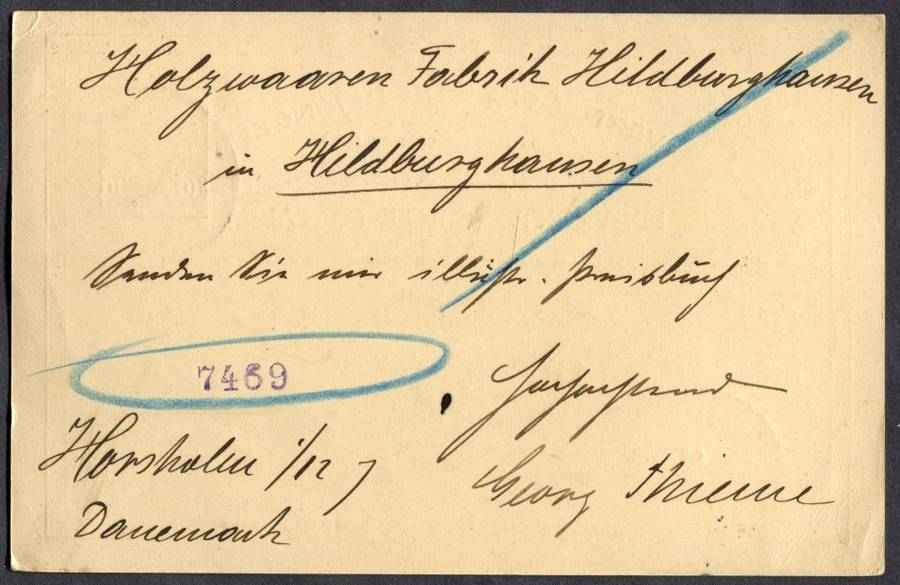 Holzwaaren Fabrik Hildburghausen
in Hildburghausen
Senden Sie mir illustr. Preisbuch
7469
Hochachtend
Horsholm 1/12 7
Georg Thieme
Danemark